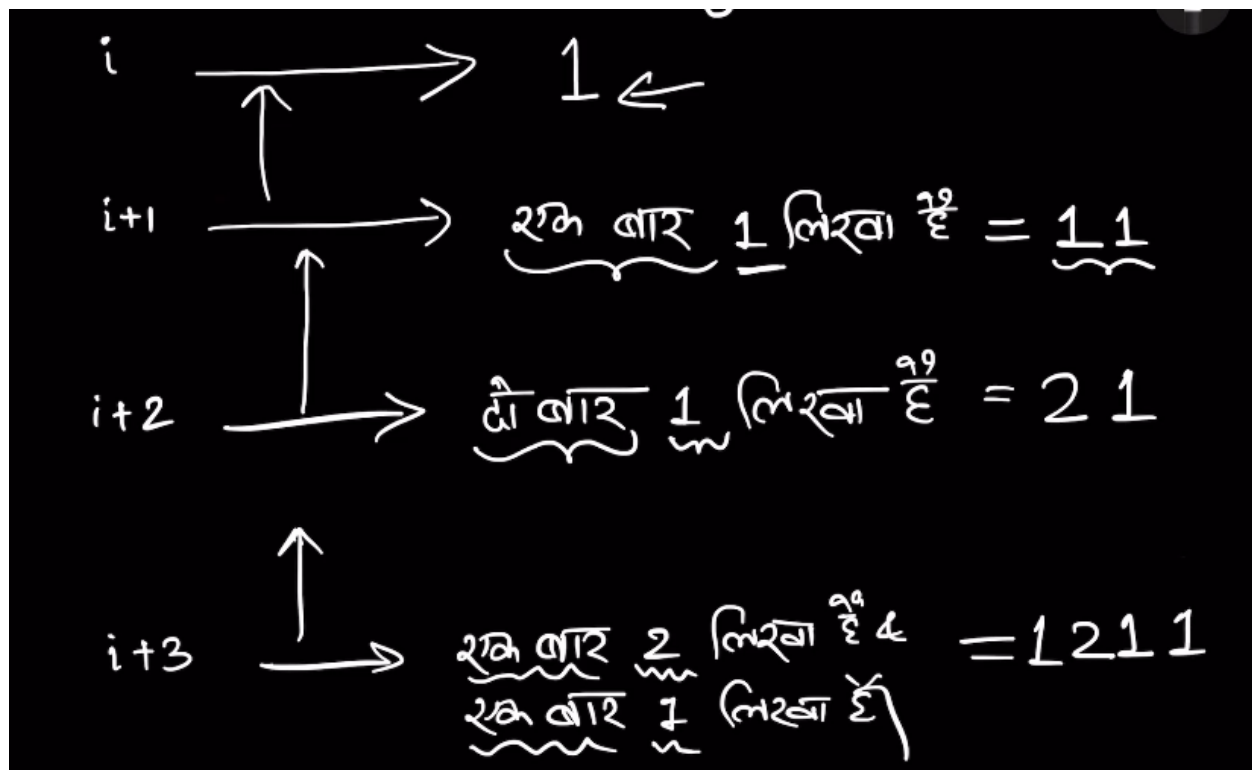 i → 1 ←
i+1 → एक बार 1 लिखा है = 11
i+2 → दो बार 1 लिखा है = 21
i+3 → एक बार 2 लिखा है & = 1211
एक बार 1 लिखा है